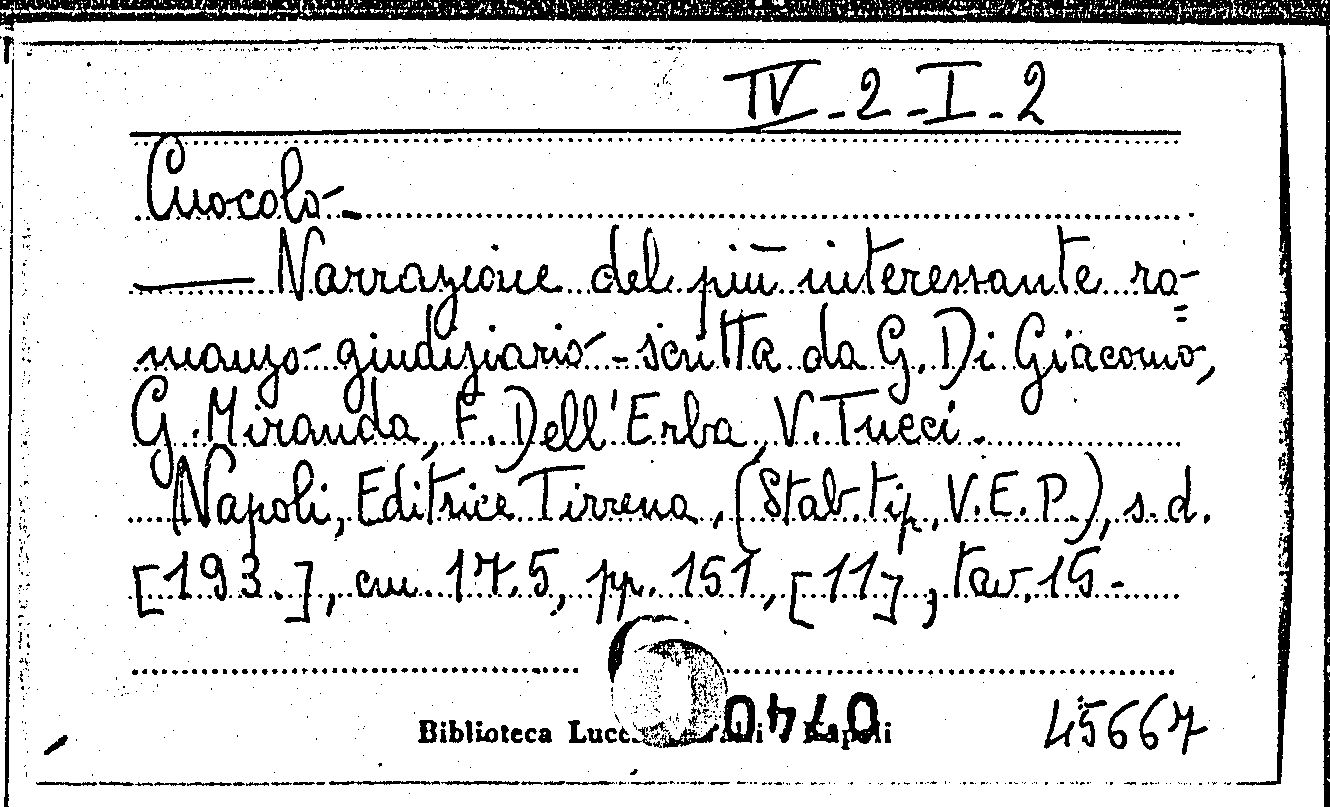 IV-2-I-2
Cuocolo-
—— Narrazione del più interessante ro=
manzo giudiziario - scritta da G. Di Giacomo,
G. Miranda, F. Dell'Erba, V. Tucci.
Napoli, Editrice Tirrena, (Stab. tip. V.E.P.), s.d.
[193.], cm. 17.5, pp. 151, [11], tav. 15.-
Biblioteca Napoli
0740
45667